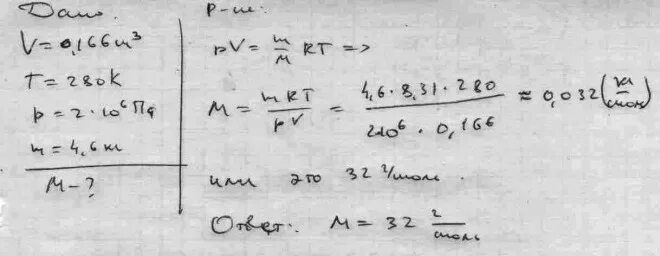 Дано:
V = 0,166 м³
T = 280 K
p = 2·10⁶ Па
m = 4,6 кг
M - ?
Р-ше:
pV = m/M RT =>
M = mRT/pV = 4,6·8,31·280/2·10⁶·0,166 ≈ 0,032 (кг/моль)
или это 32 г/моль.
Ответ: M = 32 г/моль